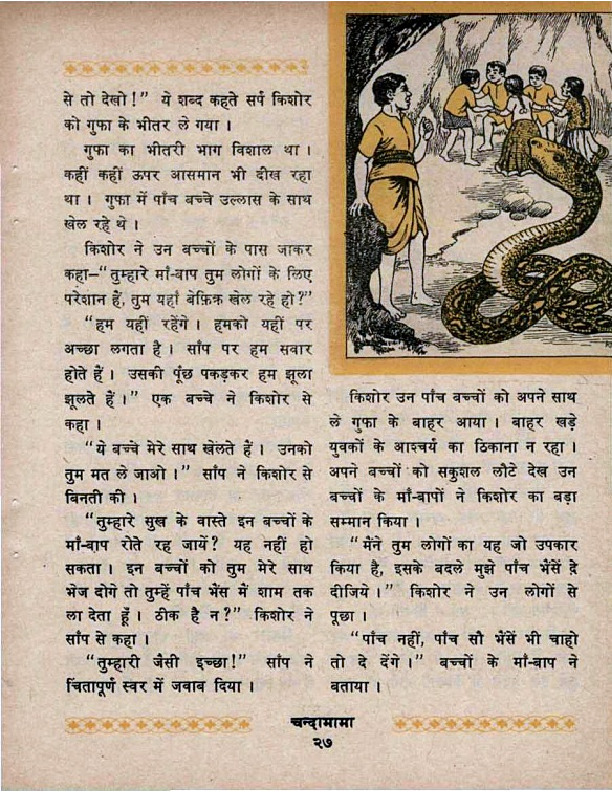 से तो देखो!” ये शब्द कहते सर्प किशोर
को गुफा के भीतर ले गया।
गुफा का भीतरी भाग विशाल था।
कहीं कहीं ऊपर आसमान भी दीख रहा
था। गुफा में पाँच बच्चे उल्लास के साथ
खेल रहे थे।
किशोर ने उन बच्चों के पास जाकर
कहा–“तुम्हारे माँ-बाप तुम लोगों के लिए
परेशान हैं, तुम यहाँ बेफ़िक्र खेल रहे हो?”
“हम यहीं रहेंगे। हमको यहीं पर
अच्छा लगता है। साँप पर हम सवार
होते हैं। उसकी पूंछ पकड़कर हम झूला
झूलते हैं।” एक बच्चे ने किशोर से
कहा।
“ये बच्चे मेरे साथ खेलते हैं। उनको
तुम मत ले जाओ।” साँप ने किशोर से
बिनती की।
“तुम्हारे सुख के वास्ते इन बच्चों के
माँ-बाप रोते रह जायें? यह नहीं हो
सकता। इन बच्चों को तुम मेरे साथ
भेज दोगे तो तुम्हें पाँच भैंस में शाम तक
ला देता हूँ। ठीक है न?” किशोर ने
साँप से कहा।
“तुम्हारी जैसी इच्छा!” साँप ने
चिंतापूर्ण स्वर में जवाब दिया॥
किशोर उन पाँच बच्चों को अपने साथ
ले गुफा के बाहर आया। बाहर खड़े
युवकों के आश्चर्य का ठिकाना न रहा।
अपने बच्चों को सकुशल लौटे देख उन
बच्चों के माँ-बापों ने किशोर का बड़ा
सम्मान किया।
“मैंने तुम लोगों का यह जो उपकार
किया है, इसके बदले मुझे पाँच भैंसें दे
दीजिये।” किशोर ने उन लोगों से
पूछा।
“पाँच नहीं, पाँच सौ भैंसें भी चाहो
तो दे देंगे।” बच्चों के माँ-बाप ने
बताया।
चन्दामामा
२७